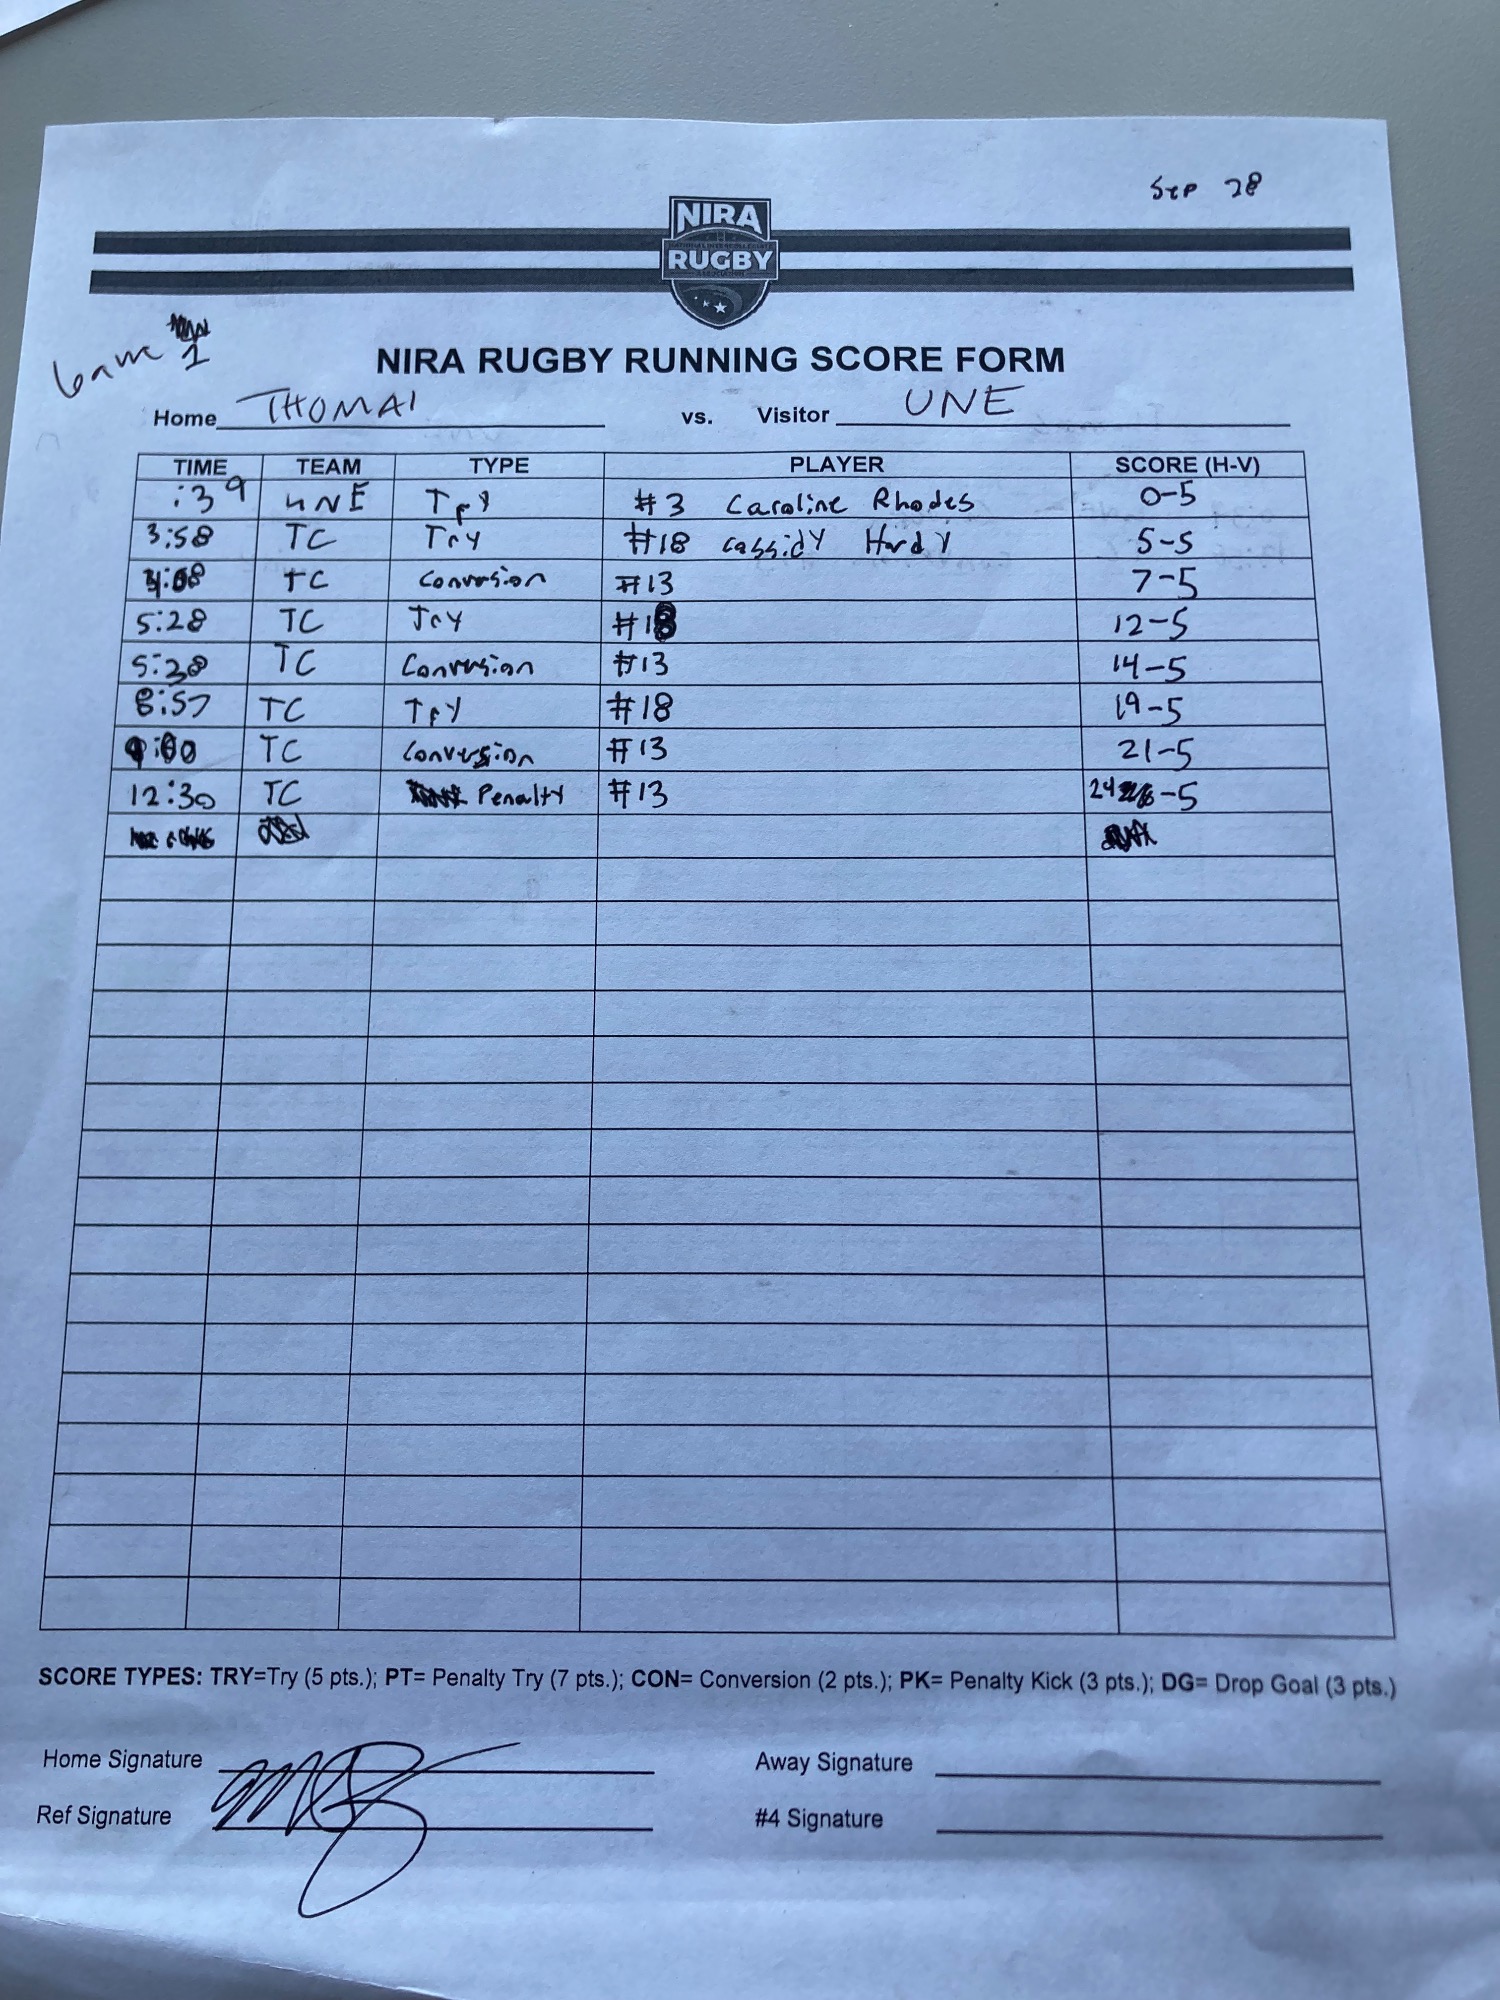 Sep 28
NIRA
RUGBY
Game 1
NIRA RUGBY RUNNING SCORE FORM
Home THOMAS vs. Visitor UNE
TIME TEAM TYPE PLAYER SCORE (H-V)
:39 UNE Try #3 Caroline Rhodes 0-5
3:58 TC Try #18 Cassidy Hardy 5-5
TC Conversion #13 7-5
5:28 TC Try #18 12-5
5:38 TC Conversion #13 14-5
8:57 TC Try #18 19-5
9:00 TC Conversion #13 21-5
12:30 TC Penalty #13 24-5
SCORE TYPES: TRY=Try (5 pts.); PT= Penalty Try (7 pts.); CON= Conversion (2 pts.); PK= Penalty Kick (3 pts.); DG= Drop Goal (3 pts.)
Home Signature Away Signature
Ref Signature #4 Signature